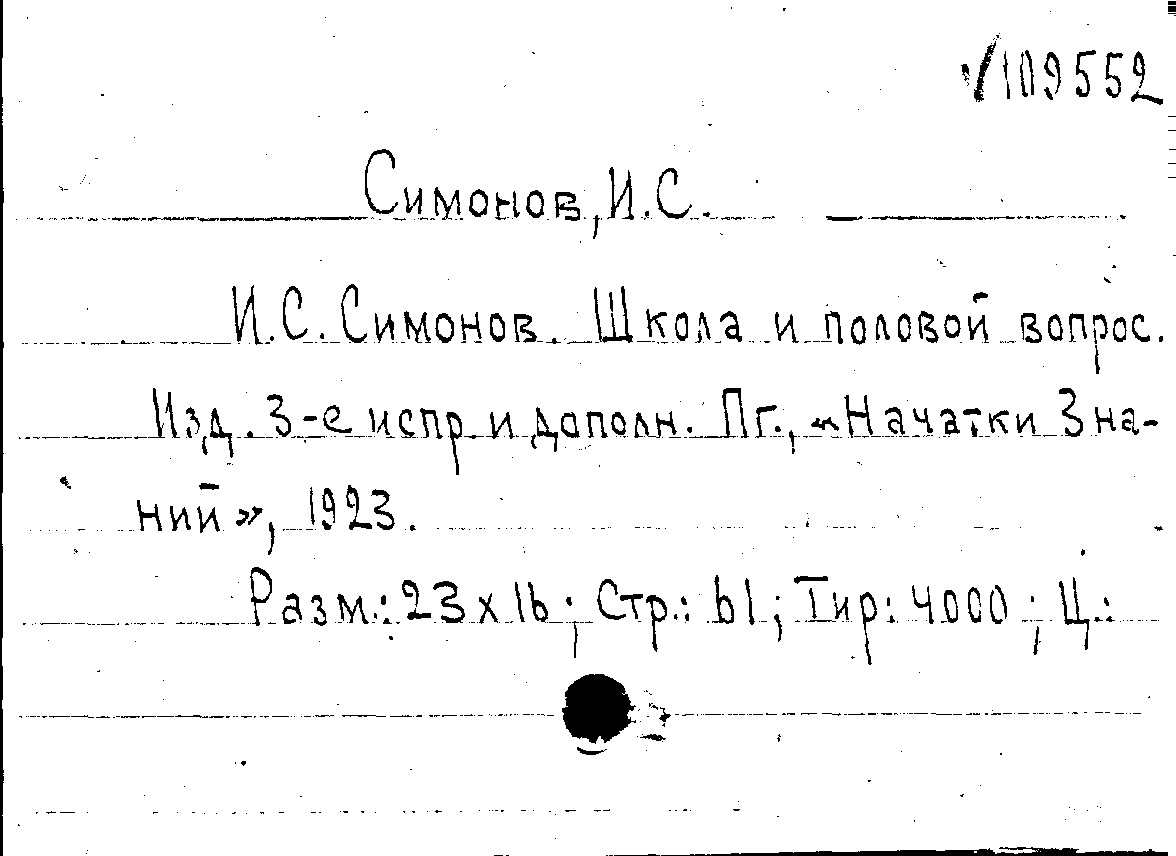 √109552
Симонов, И.С.
И.С. Симонов. Школа и половой вопрос.
Изд. 3-е испр. и дополн. Пг., «Начатки Зна-
ний», 1923.
Разм.: 23х16; Стр.: 61; Тир: 4000; Ц.: